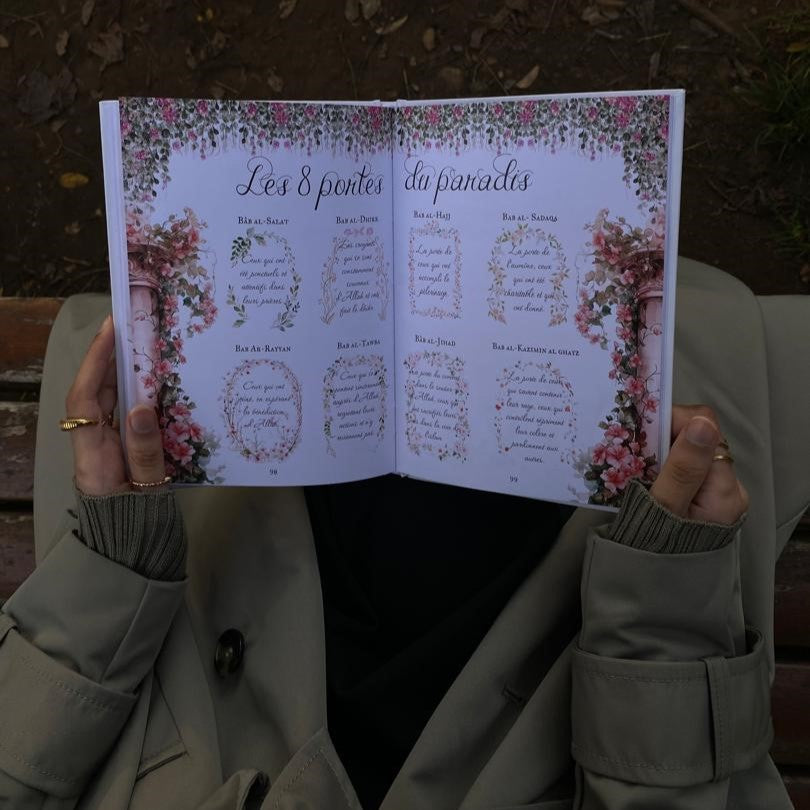 Les 8 portes du paradis
BAB AL-SALAT
Ceux qui ont
été ponctuels et
attentifs dans
leurs prières.
BAB AL-DHIKR
Les croyants
qui se sont
constamment
souvenus
d'Allah et ont
fait le dhikr.
BAB AL-HAJJ
La porte de
ceux qui ont
accompli le
pèlerinage.
BAB AL- SADAQA
La porte de
l'aumône, ceux
qui ont été
charitable et qui
ont donné.
BAB AR-RAYYAN
Ceux qui ont
jeûné, en espérant
la bénédiction
d'Allah.
BAB AL-TAWBA
Ceux qui se
sincèrement
auprès d'Allah,
regrettent leurs
actions et n'y
reviennent pas.
BÂB AL-JIHAD
La porte du combat
dans le sentier
d'Allah, ceux qui
se sacrifient leurs
dans la voie de
l'islam.
BAB AL-KAZIMIN AL GHAYZ
La porte de ceux
qui savent contenir
leur rage, ceux qui
contrôlent répriment
leur colère et
pardonnent aux
autres.
98
99